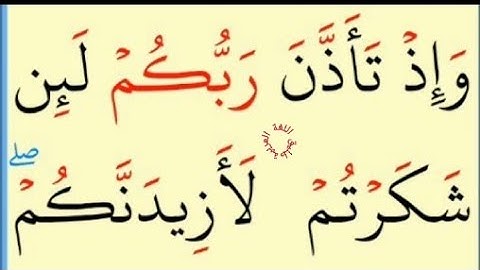 وَإِذْ تَأَذَّنَ رَبُّكُمْ لَئِن
شَكَرْتُمْ لَأَزِيدَنَّكُمْ ۖ